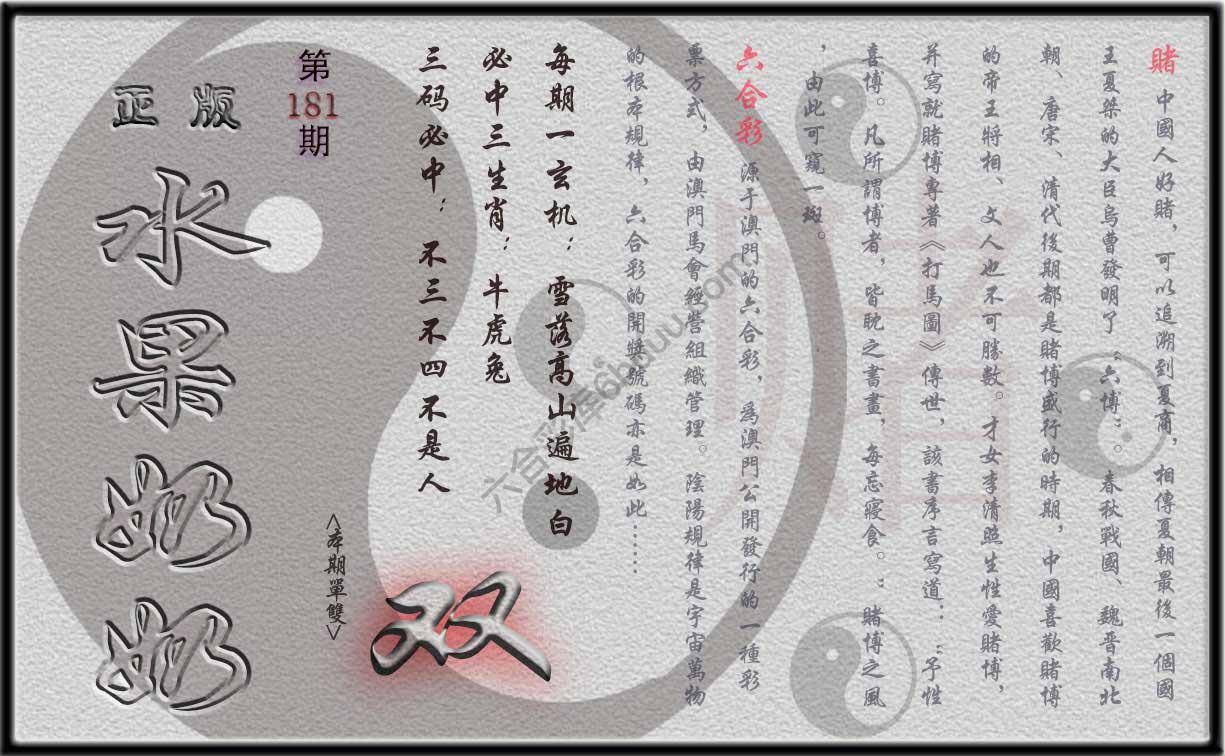 賭 中國人好賭，可以追溯到夏商，相傳夏朝最後一個國
王夏桀的大臣烏曹發明了“六博”。春秋戰國、魏晋南北
朝、唐宋、清代後期都是賭博盛行的時期，中國喜歡賭博
的帝王將相、文人也不可勝數。才女李清照生性愛賭博，
并寫就賭博專著《打馬圖》傳世，該書序言寫道：“予性
喜博。凡所謂博者，皆耽之書畫，每忘寢食。”賭博之風
，由此可窺一斑。
六合彩 源于澳門的六合彩，為澳門公開發行的一種彩
票方式，由澳門馬會經營組織管理。陰陽規律是宇宙萬物
的根本規律，六合彩的開獎號碼亦是如此……
每期一玄机：雪落高山遍地白
必中三生肖：牛虎兔
三码必中：不三不四不是人
双
<本期單雙>
第181期
正版
水果奶奶
六合彩库6hduu.com
賭